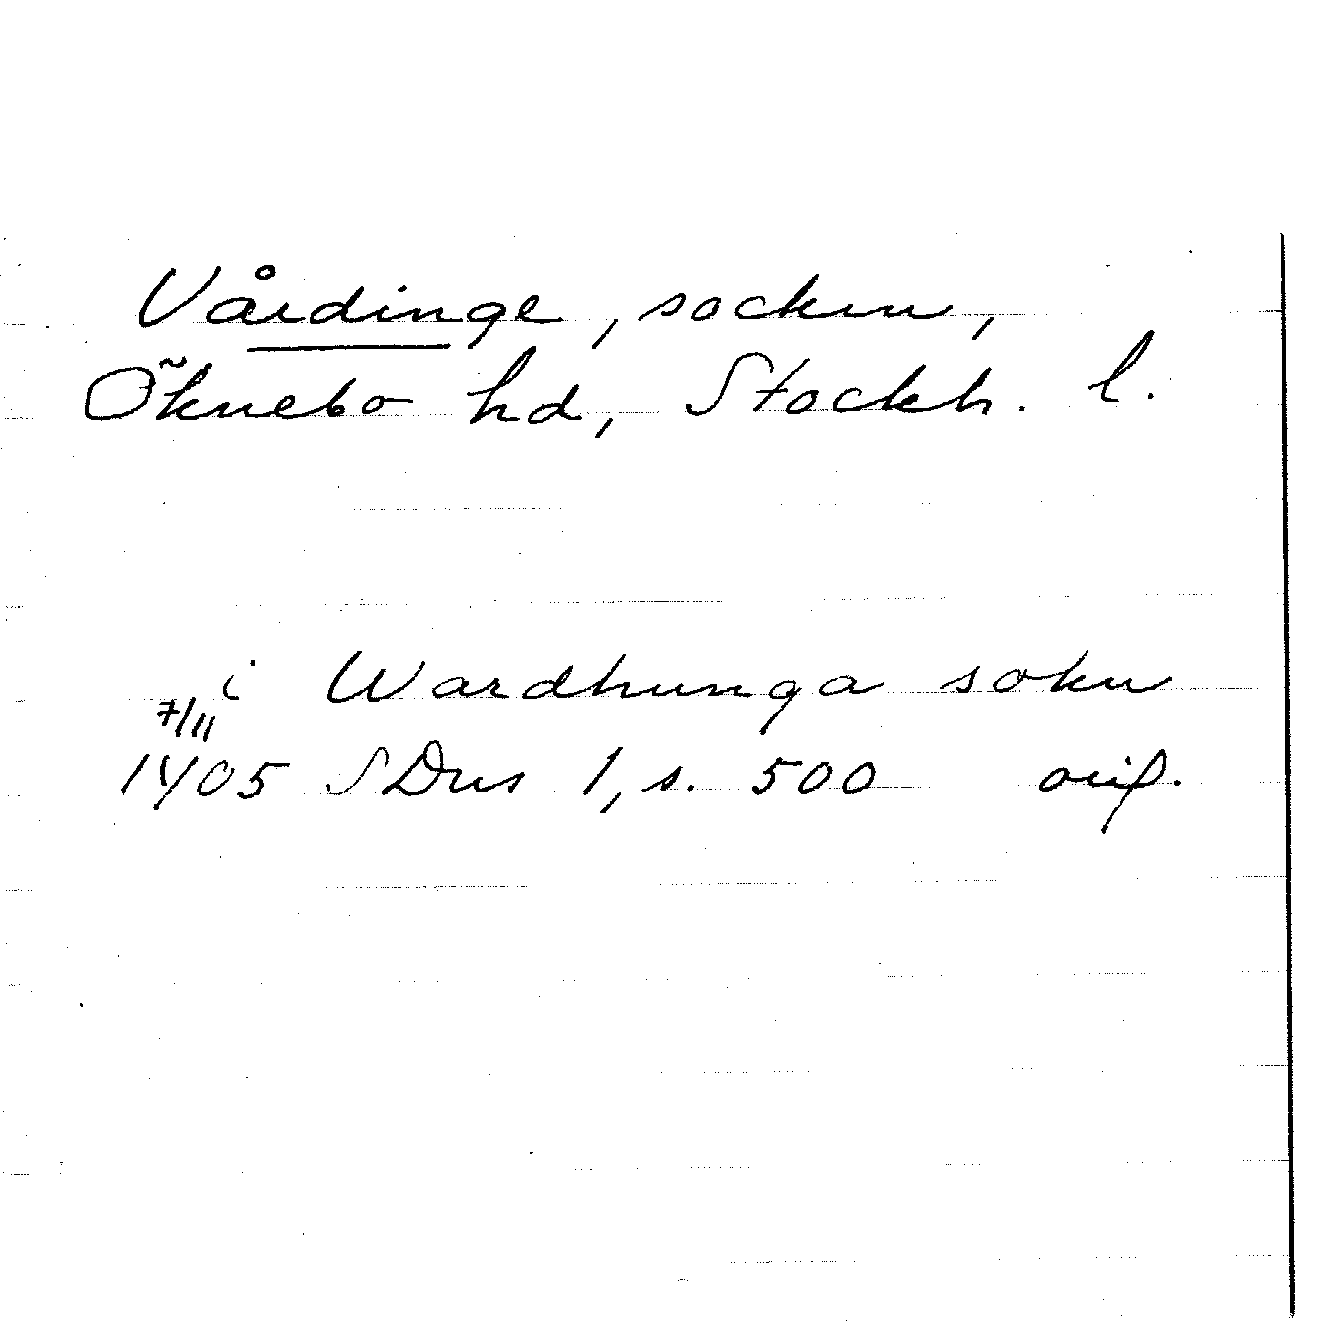 Vårdinge, socken,
Öknebo hd, Stockh. l.
i Wardhunga sokn
7/11
1405 SDns 1, s. 500 orig.